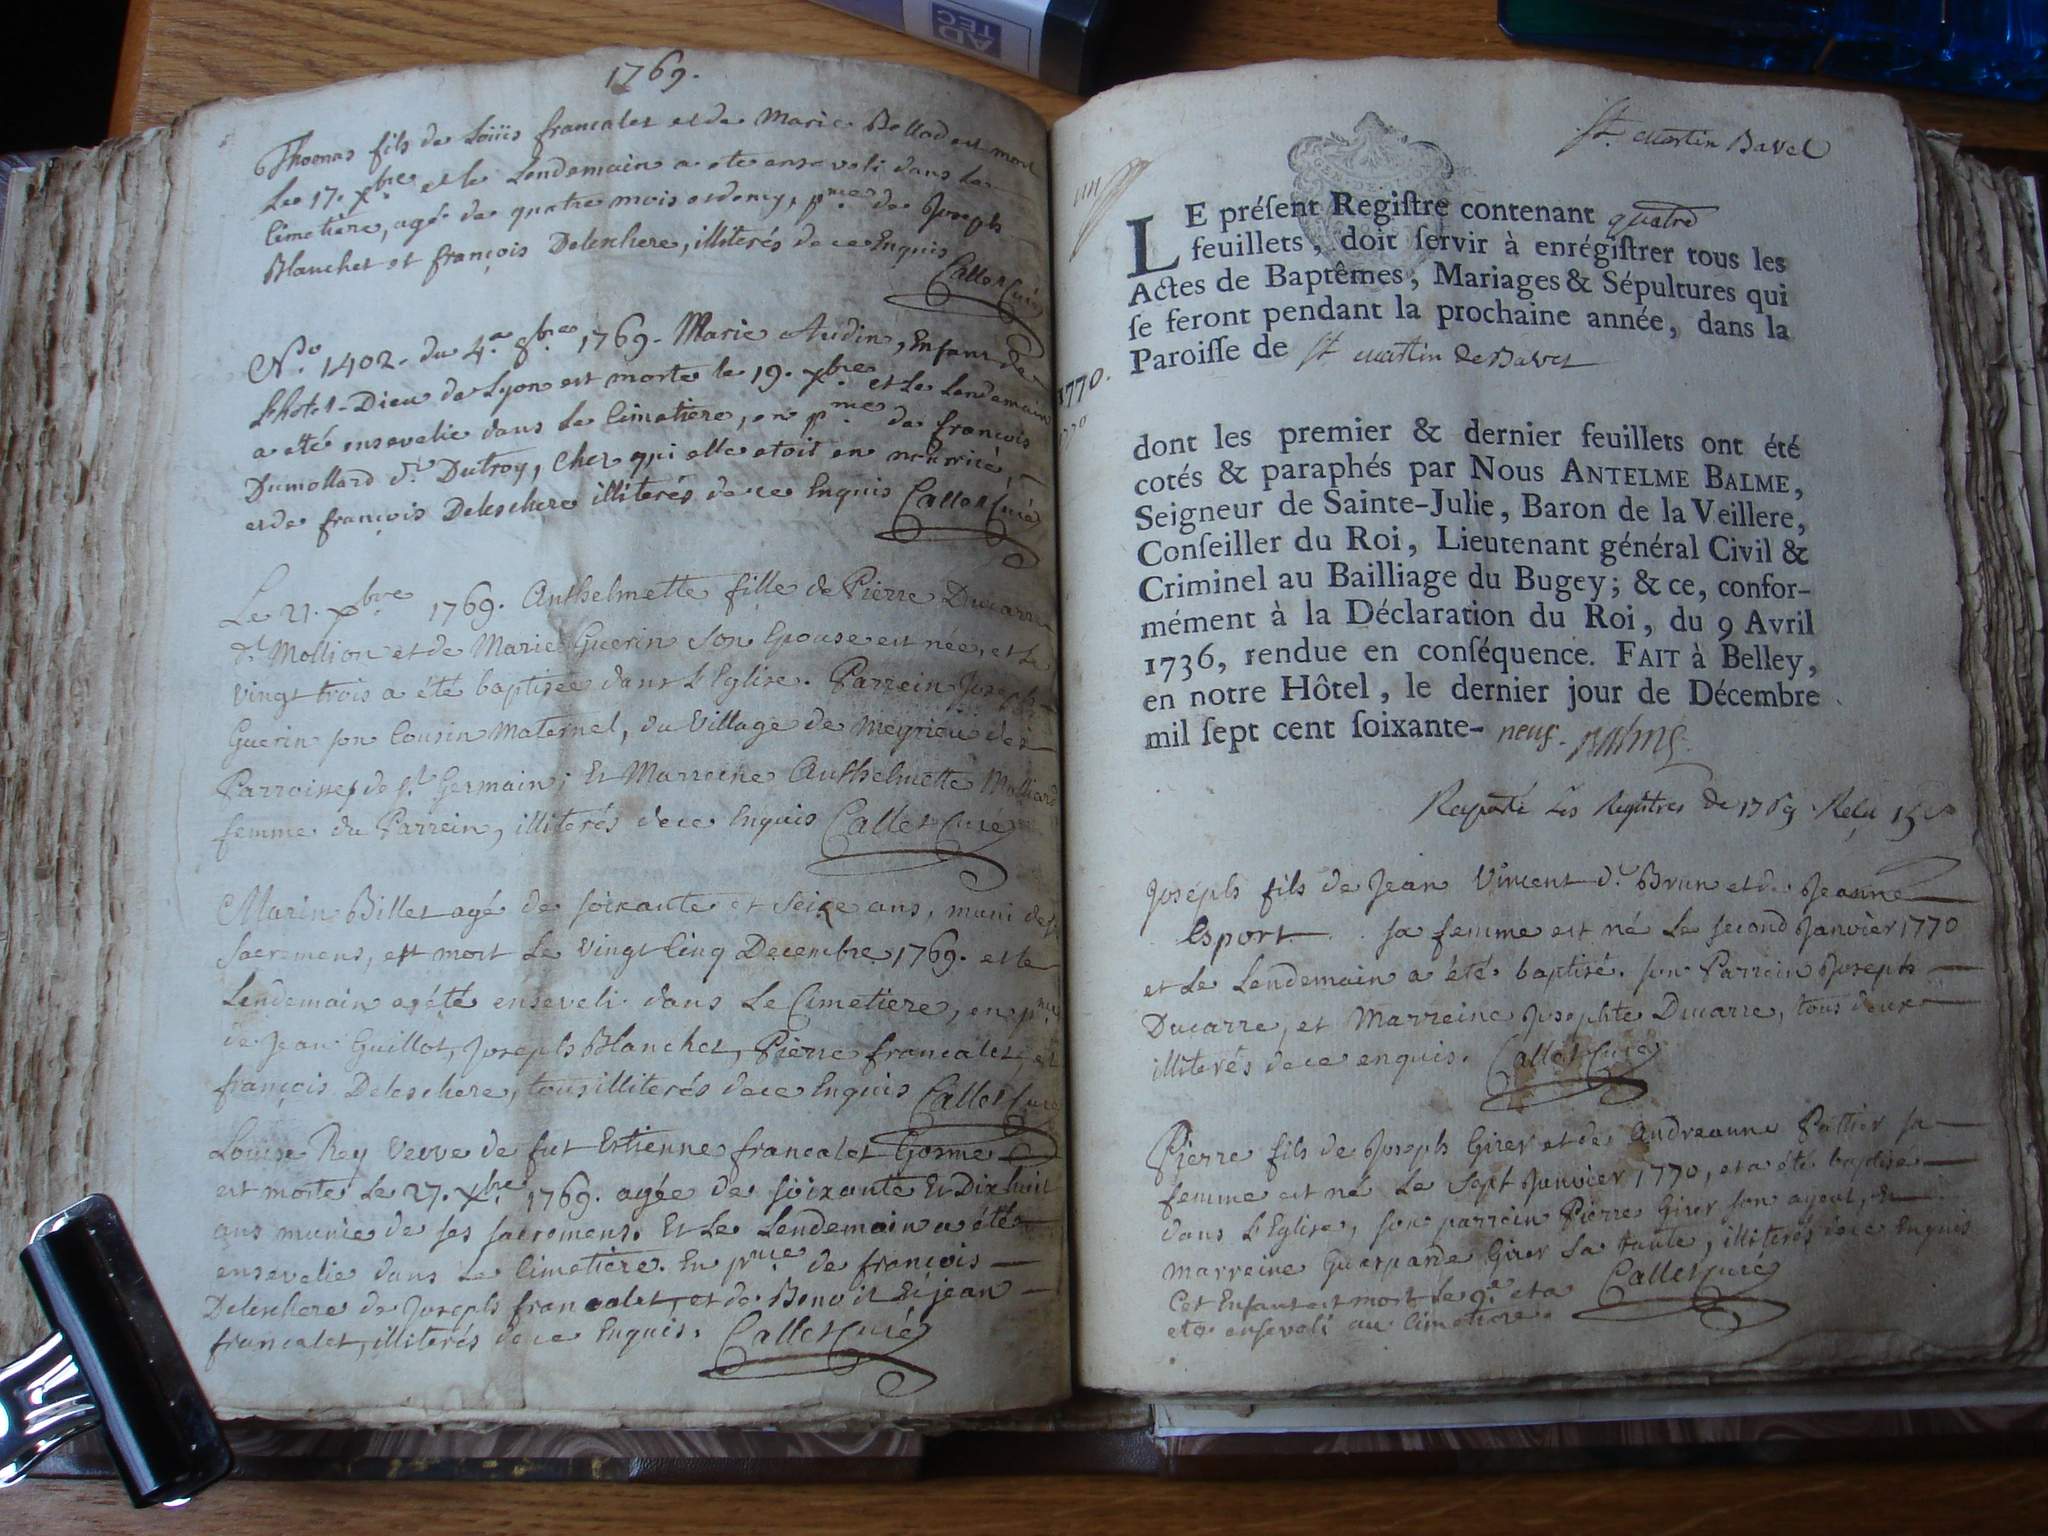 AD
TEC
1769.
Thomas fils de Loüis francalet et de Marie Bollod est mort
Le 17. xbre et le Lendemain a ete enseveli dans le
Cimetière, agé de quatre mois et demy, pnce de Joseph
Blanchet et françois Deleschere, illiterés de ce Enquis
Callet Curé
No. 1402. du 4.e 8bre 1769. Marie Audin, Enfant de
L'hotel-Dieu de Lyon est morte le 19. xbre et Le Lendemain
a eté ensevelie dans Le Cimetière, en pnce de françois
Dumollard dt Dutroy, Chez qui elle etoit en nourice,
et de françois Deleschere illiterés de ce Enquis Callet Curé
Le 21. xbre 1769. Anthelmette fille de Pierre Ducarre
dt Mollion et de Marie Guerin son Epouse est née, et Le
vingt trois a été baptisée dans L'Eglise. Parrein Joseph
Guerin son Cousin Maternel, du Village de Meyrieu de
Parroisse de St Germain; Et Marreine Anthelmette
femme du Parrein, illiterés de ce Enquis Callet Curé
Marin Billet agé de soixante et seize ans, muni des
Sacremens, est mort Le vingt Cinq Decembre 1769. et le
Lendemain a été enseveli dans Le Cimetiere, en pnce
de Jean Guillot, Joseph Blanchet, Pierre francalet, et
françois Deleschere, tous illiterés de ce Enquis Callet Curé
Louise Rey Veuve de fut Estienne francalet Gosme
est morte Le 27. xbre 1769. agée de soixante Et Dix huit
ans munie de ses sacremens. Et Le Lendemain a été
ensevelie dans Le Cimetière. En pnce de françois
Deleschere de Joseph francalet, et de Benoit Et jean
francalet, illiterés de ce Enquis. Callet Curé
St. Martin Bavel
LE préſent Regiſtre contenant quatre
feuillets, doit ſervir à enrégiſtrer tous les
Actes de Baptêmes, Mariages & Sépultures qui
ſe feront pendant la prochaine année, dans la
Paroiſſe de St Martin de Bavel
1770.
1770
dont les premier & dernier feuillets ont été
cotés & paraphés par Nous ANTELME BALME,
Seigneur de Sainte-Julie, Baron de la Veillere,
Conſeiller du Roi, Lieutenant général Civil &
Criminel au Bailliage du Bugey; & ce, confor-
mément à la Déclaration du Roi, du 9 Avril
1736, rendue en conſéquence. FAIT à Belley,
en notre Hôtel, le dernier jour de Décembre
mil ſept cent ſoixante- neuf. Balme
Raporté Les Registres de 1769. Reçu 15 s
Joseph fils de Jean Vincent dt Brun et de Jeanne
Esport sa femme est né Le second Janvier 1770
et Le Lendemain a été baptisé. son Parrein Joseph
Ducarre, et Marreine Josephte Ducarre, tous deux
illiterés de ce enquis. Callet Curé
Pierre fils de Joseph Girer et de Andreanne Pattier sa
femme est né Le Sept Janvier 1770, et a été baptisé
dans L'Eglise, son parrein Pierre Girer son ayeul, Et
marreine Guasparde Girer sa tante, illiterés de ce Enquis
Cet Enfant est mort Le 9.e et a Callet Curé
eté enseveli au Cimetiere.